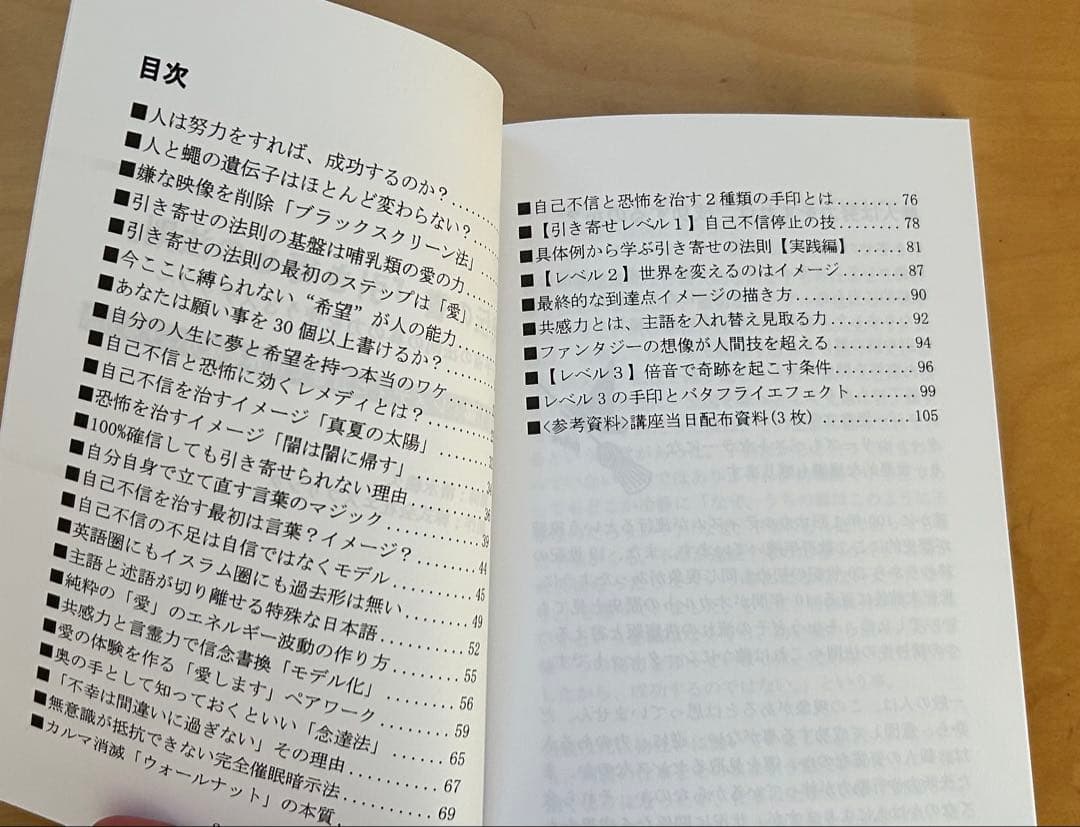 目次
■人は努力をすれば、成功するのか？
■人と蠅の遺伝子はほとんど変わらない？
■嫌な映像を削除「ブラックスクリーン法」
■引き寄せの法則の基盤は哺乳類の愛の力
■引き寄せの法則の最初のステップは「愛」
■今ここに縛られない“希望”が人の能力
■あなたは願い事を30個以上書けるか？
■自分の人生に夢と希望を持つ本当のワケ
■自己不信と恐怖に効くレメディとは？
■自己不信を治すイメージ「真夏の太陽」
■恐怖を治すイメージ「闇は闇に帰す」
■100%確信しても引き寄せられない理由
■自分自身で立て直す言葉のマジック 36
■自己不信を治す最初は言葉？イメージ？ 39
■自己不信の不足は自信ではなくモデル 44
■英語圏にもイスラム圏にも過去形は無い 45
■主語と述語が切り離せる特殊な日本語 49
■純粋の「愛」のエネルギー波動の作り方 52
■共感力と言霊力で信念書換「モデル化」 55
■愛の体験を作る「愛します」ペアワーク 56
■奥の手として知っておくといい「念達法」 59
■「不幸は間違いに過ぎない」その理由 65
■無意識が抵抗できない完全催眠暗示法 67
■カルマ消滅「ウォールナット」の本質 69
■自己不信と恐怖を治す２種類の手印とは 76
■【引き寄せレベル１】自己不信停止の技 78
■具体例から学ぶ引き寄せの法則【実践編】 81
■【レベル２】世界を変えるのはイメージ 87
■最終的な到達点イメージの描き方 90
■共感力とは、主語を入れ替え見取る力 92
■ファンタジーの想像が人間技を超える 94
■【レベル３】倍音で奇跡を起こす条件 96
■レベル３の手印とバタフライエフェクト 99
■<参考資料>講座当日配布資料(3枚) 105